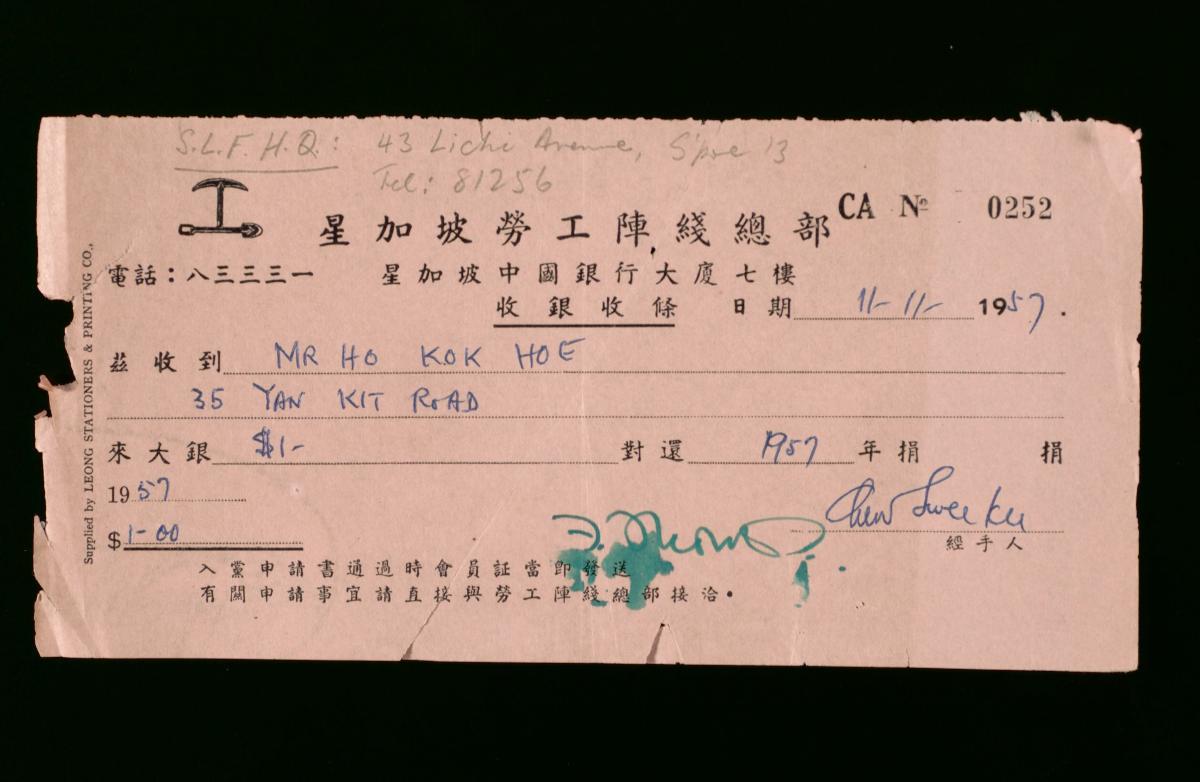 S.L.F. H.Q.: 43 Lichi Avenue, S'pore 13
Tel: 81256
CA Nº 0252
星加坡勞工陣綫總部
電話：八三三三一 星加坡中國銀行大廈七樓
收銀收條 日期 11/-11/- 1957.
茲收到 MR HO KOK HOE
35 YAN KIT ROAD
來大銀 $1- 對還 1957 年捐 捐
1957
Chew Swee Kee
$ 1-00
經手人
入黨申請書通過時會員証當即發送
有關申請事宜請直接與勞工陣綫總部接洽.
Supplied by LEONG STATIONERS & PRINTING CO.,